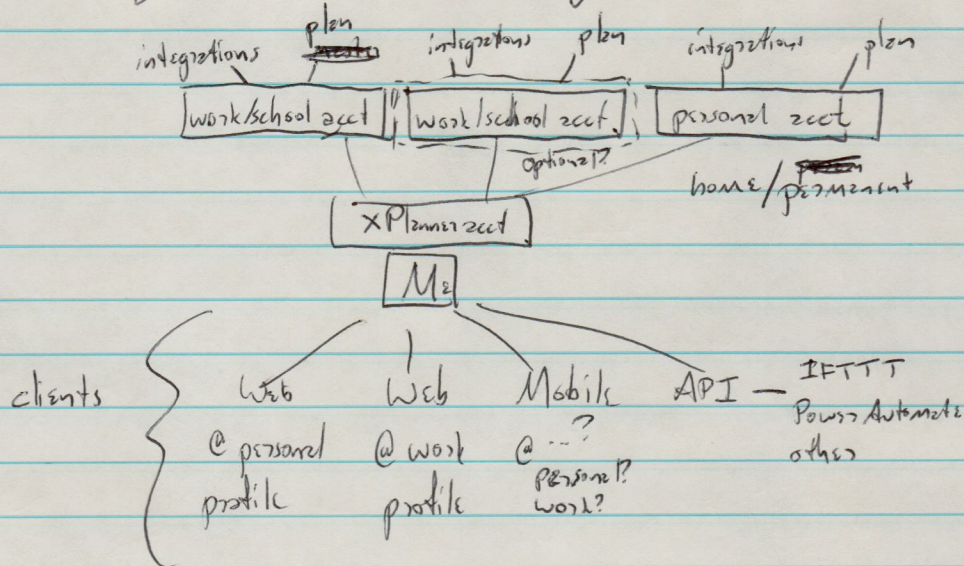 plan
integrations
integrations
plan
integrations
plan
work/school acct
work/school acct
personal acct
optional?
home/permanent
xPlanner acct
Me
clients
Web
@ personal
profile
Web
@ work
profile
Mobile
@ ...?
personal?
work?
API — IFTTT
Power Automate
other